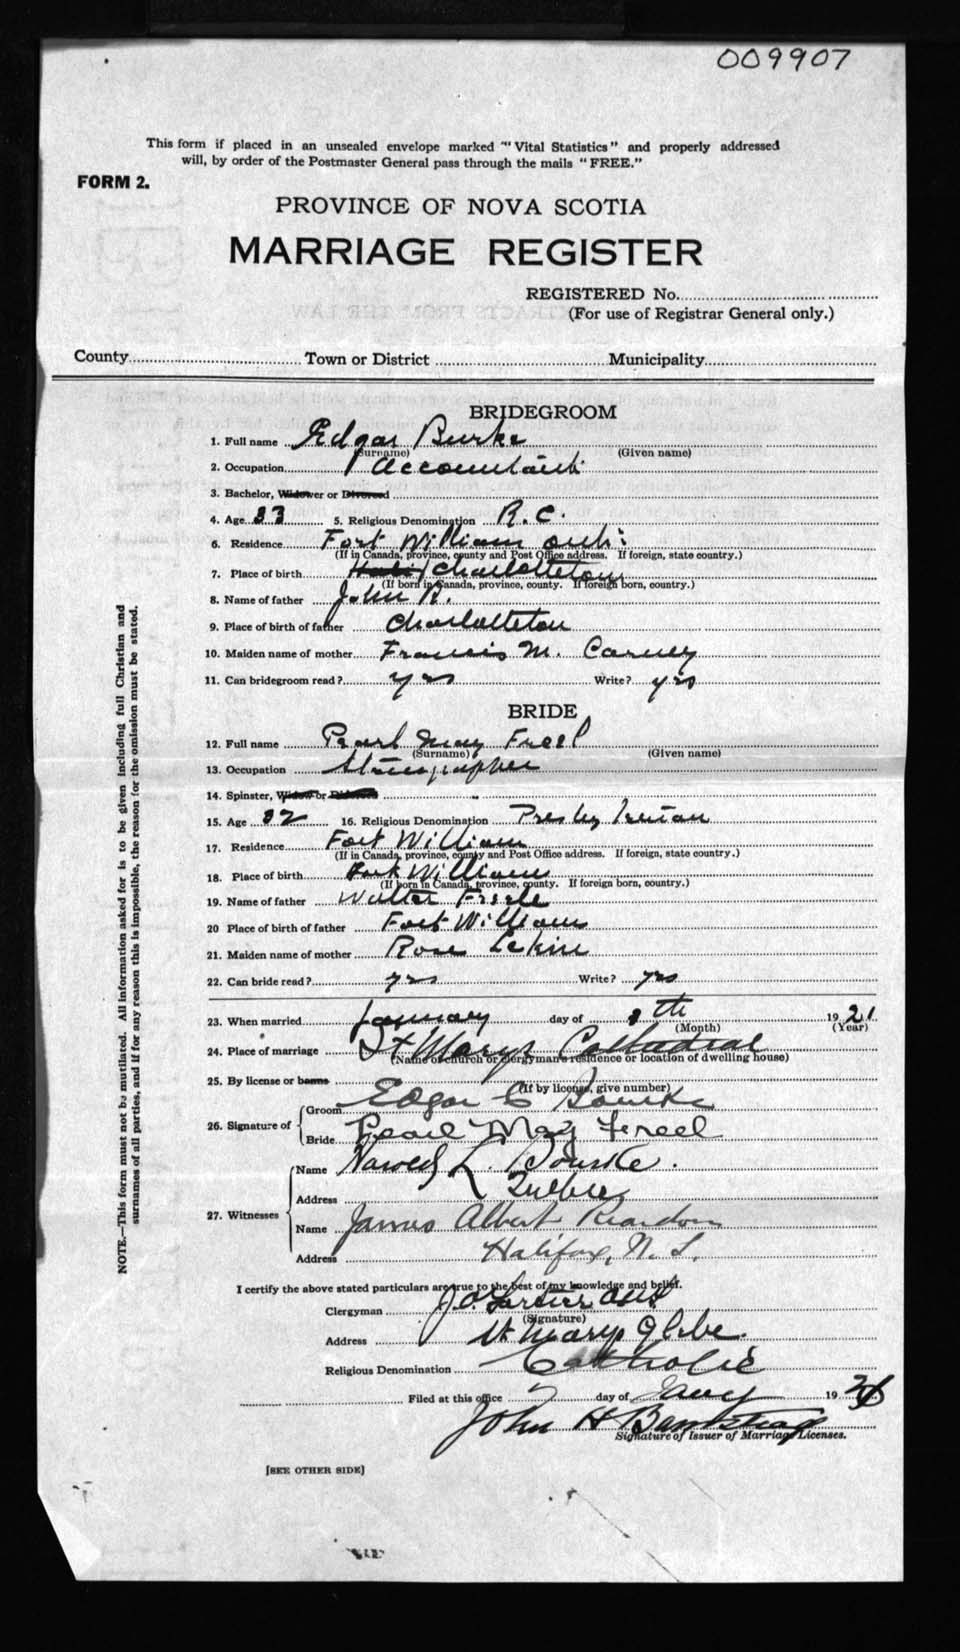 009907
This form if placed in an unsealed envelope marked "Vital Statistics" and properly addressed
will, by order of the Postmaster General pass through the mails "FREE."
FORM 2.
PROVINCE OF NOVA SCOTIA
MARRIAGE REGISTER
REGISTERED No.
(For use of Registrar General only.)
County Town or District Municipality
BRIDEGROOM
1. Full name Edgar Burke
(Surname) (Given name)
2. Occupation Accountant
3. Bachelor, Widower or Divorced
4. Age 33 5. Religious Denomination R.C.
6. Residence Fort William Ont:
(If in Canada, province, county and Post Office address. If foreign, state country.)
7. Place of birth Charlottetown
(If born in Canada, province, county. If foreign born, country.)
8. Name of father John R.
9. Place of birth of father Charlotteton
10. Maiden name of mother Francis M. Carney
11. Can bridegroom read? yes Write? yes
BRIDE
12. Full name Pearl May Freel
(Surname) (Given name)
13. Occupation Stenographer
14. Spinster, Widow or Divorced
15. Age 32 16. Religious Denomination Presbyterian
17. Residence Fort William
(If in Canada, province, county and Post Office address. If foreign, state country.)
18. Place of birth Fort William
(If born in Canada, province, county. If foreign born, country.)
19. Name of father Walter Freele
20 Place of birth of father Fort William
21. Maiden name of mother Rose
22. Can bride read? yes Write? yes
23. When married January day of 8th 1921
(Month) (Year)
24. Place of marriage St Marys Cathedral
(Name of church or clergyman's residence or location of dwelling house)
25. By license or banns
(If by license, give number)
26. Signature of Groom Edgar C Bourke
Bride Pearl May Freel
27. Witnesses
Name L. Bourke.
Address Quebec
Name James Albert Reardon
Address Halifax, N. S.
I certify the above stated particulars are true to the best of my knowledge and belief.
Clergyman J.O.
(Signature)
Address St Marys Glebe.
Religious Denomination Catholic
Filed at this office 7 day of Jany 1921
John H
Signature of Issuer of Marriage Licenses.
[SEE OTHER SIDE]
NOTE.—This form must not be mutilated. All information asked for is to be given including full Christian and
surnames of all parties, and if for any reason this is impossible, the reason for the omission must be stated.